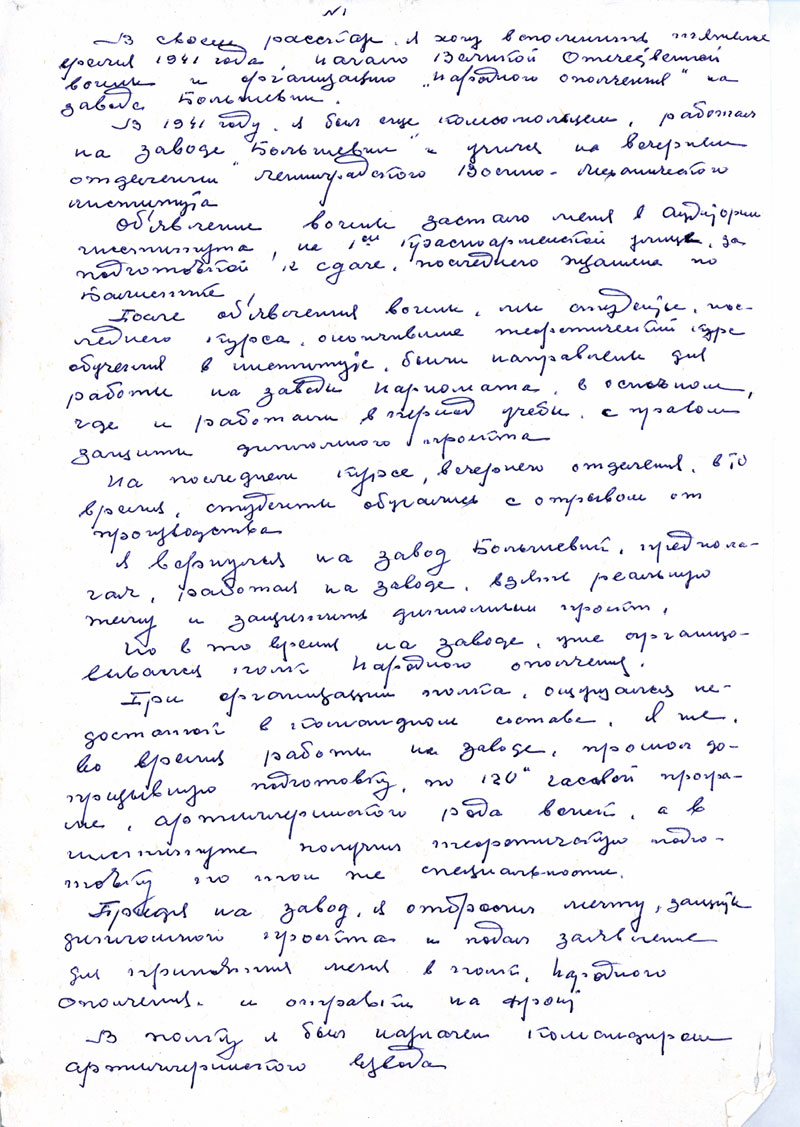 N1
В своем рассказе я хочу вспомнить тяжелые
время 1941 года, начало Великой Отечественной
воины и организацию „Народного ополчения" на
заводе Большевик.
В 1941 году, я был еще комсомольцем, работал
на заводе "Большевик" и учился на вечернем
отделении Ленинградского Военно-механического
института
Об'явление воины застало меня в аудитории
института, на 1ой Красноармейской улице, за
подготовкой к сдаче, последнего экзамена по
балистике,
После об'явления воины, мы студенты, пос-
леднего курса, окончившие теоретический курс
обучения в институте, были направлены для
работы на заводы Наркомата, в основном,
где и работали в период учебы, с правом
защиты дипломного проекта
На последнем курсе, вечернего отделения, в то
время, студенты обучались с отрывом от
производства
Я вернулся на завод Большевик, предпола-
гая, работая на заводе, взять реальную
тему и защитить дипломный проект,
Но в то время на заводе, уже организо-
вывался полк Народного ополчения.
При организации полка, ощущался не-
достаток в командном составе, Я же,
во время работы на заводе, прошол до-
призывную подготовку, по 120" часовой програ-
ме, артиллерийского рода воиск, а в
институте получил теоретическую подго-
товку по той же специальности.
Придя на завод, я отбросил мечту, защиты
дипломного проекта и подал заявление
для принятия меня в полк, Народного
ополчения, и отправки на фронт
В полку я был назначен командиром
артиллерийского взвода